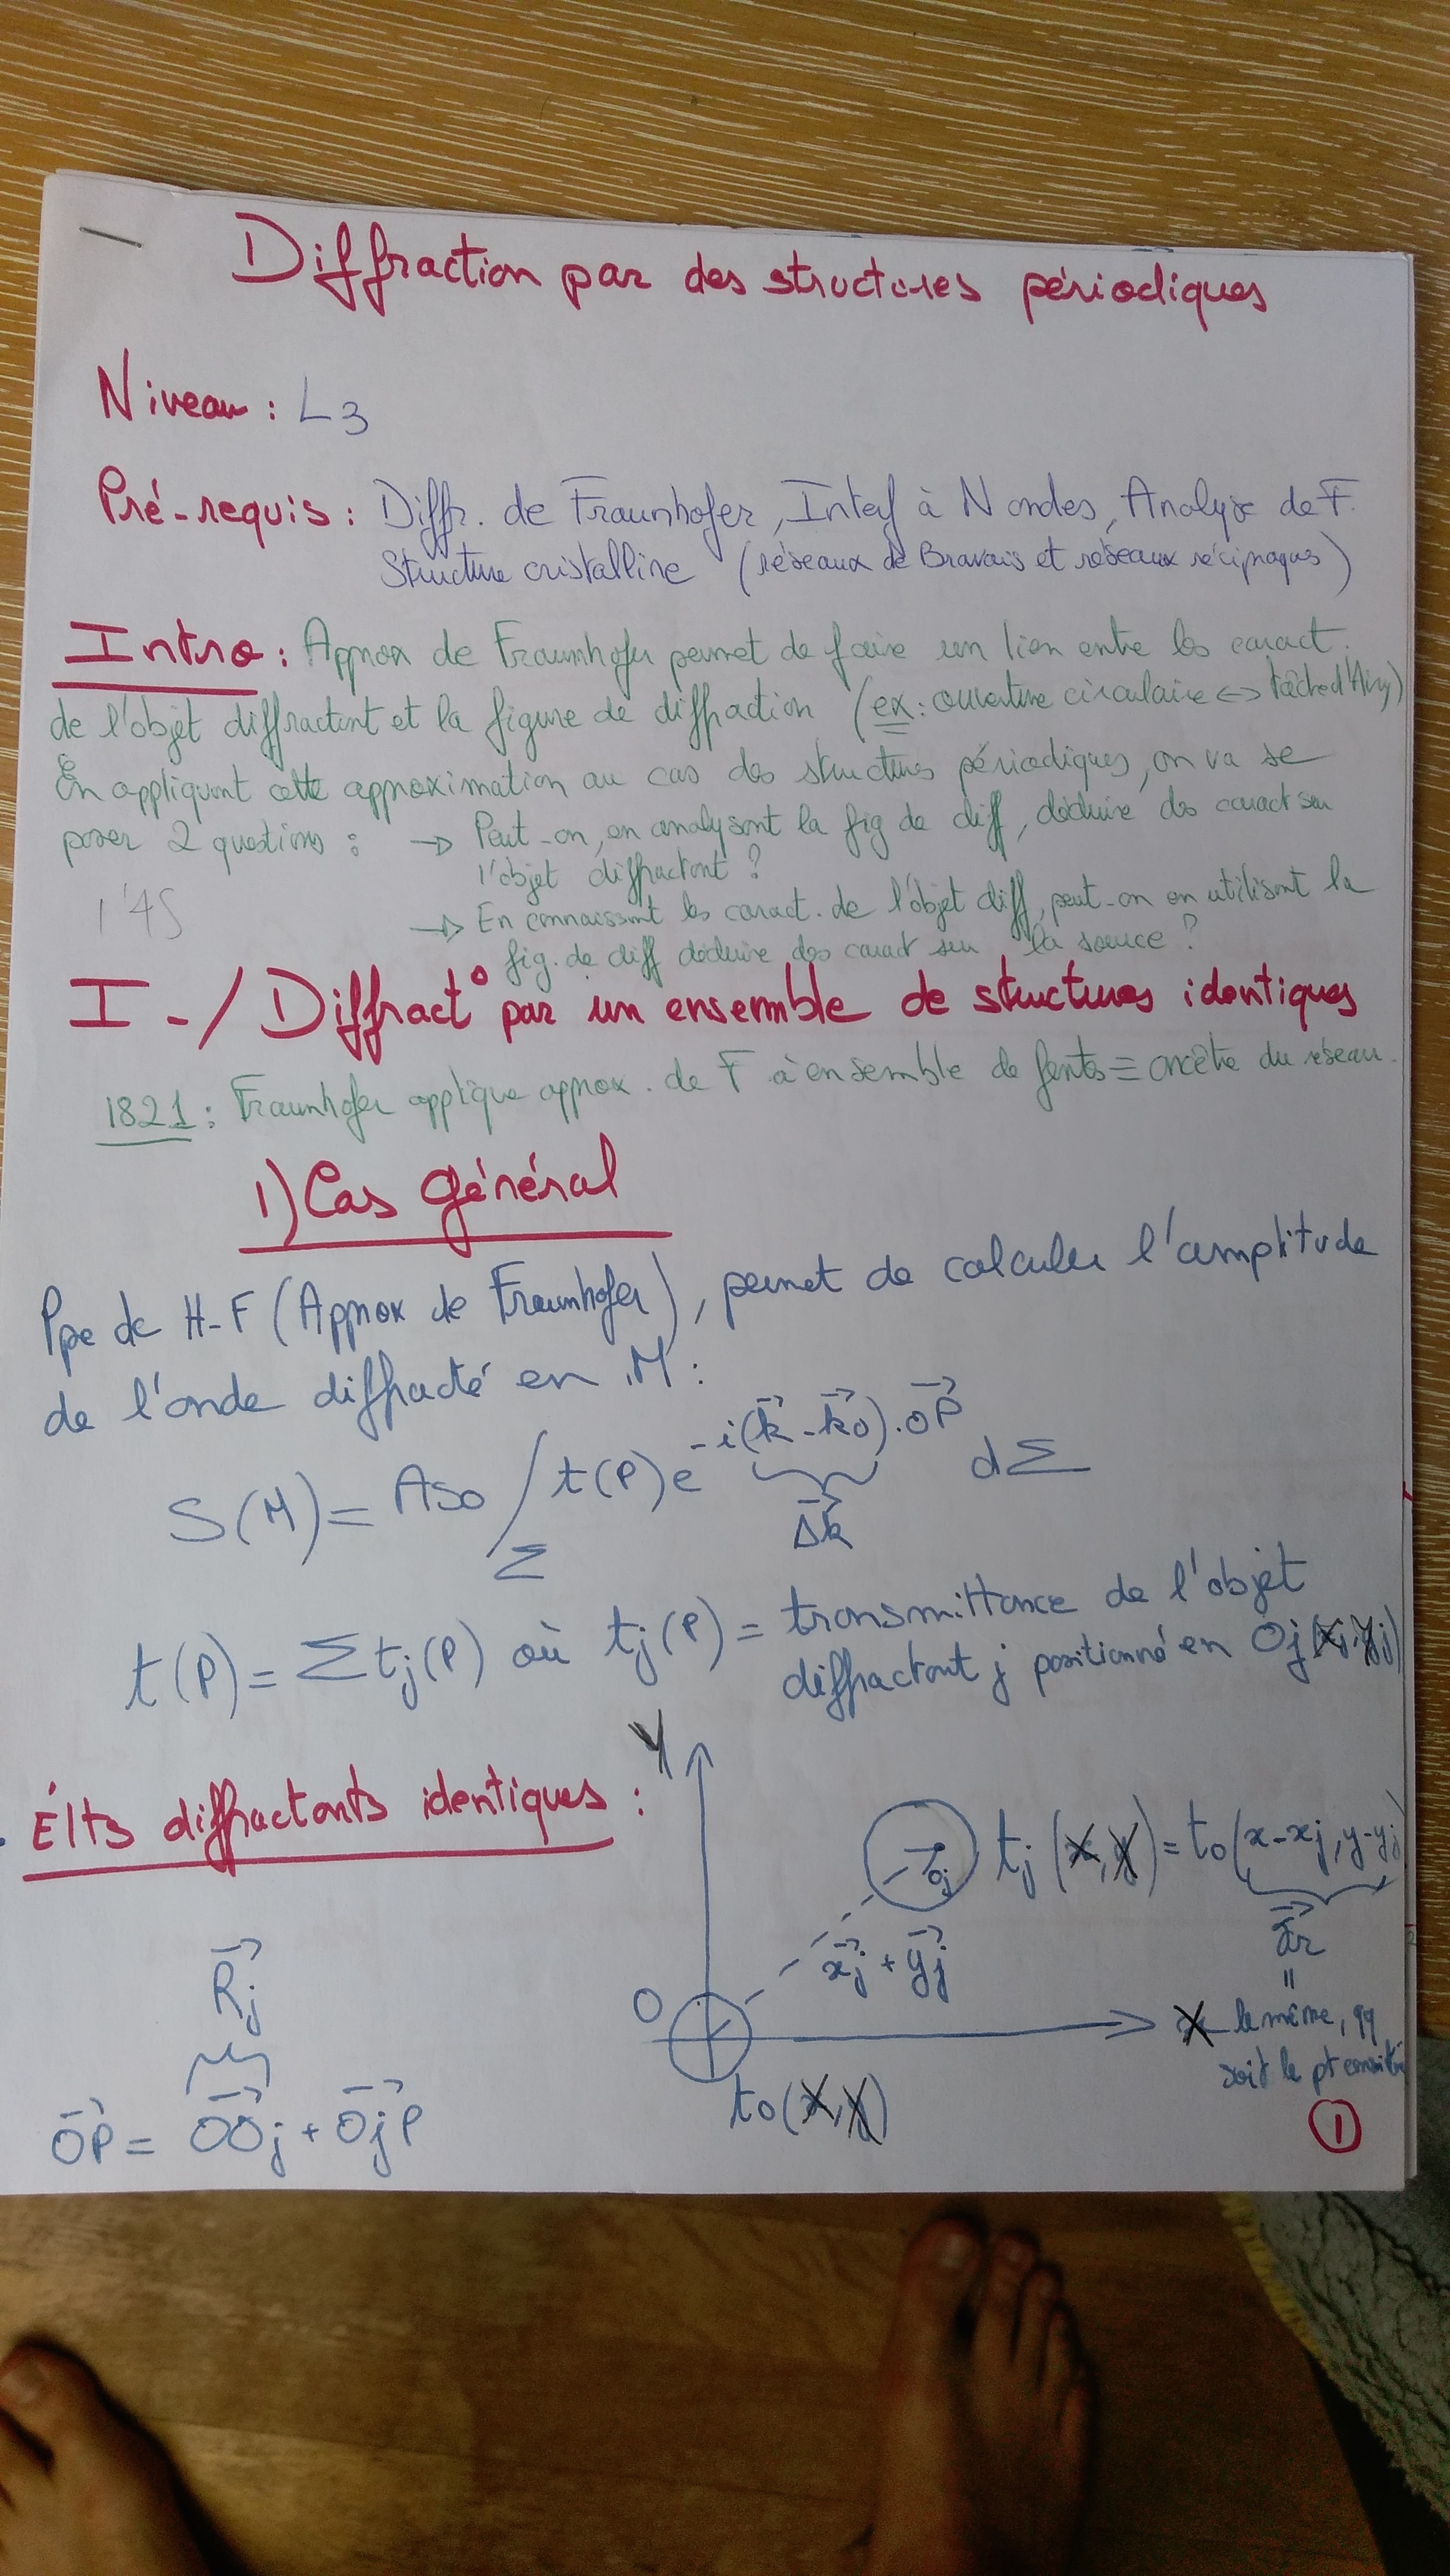 Diffraction par des structures périodiques
Niveau : L3
Pré-requis : Diffr. de Fraunhofer, Interf à N ondes, Analyse de F.
Structure cristalline (réseaux de Bravais et réseaux réciproques)
Intro : Approx de Fraunhofer permet de faire un lien entre les caract.
de l'objet diffractant et la figure de diffraction (ex : ouverture circulaire <-> tâche d'Airy)
En appliquant cette approximation au cas des structures périodiques, on va se
poser 2 questions : → Peut-on, en analysant la fig de diff, déduire des caract sur
l'objet diffractant ?
1'45
→ En connaissant les caract. de l'objet diff, peut-on en utilisant la
fig. de diff déduire des caract sur la source ?
I-/ Diffract° par un ensemble de structures identiques
1821 : Fraunhofer applique approx. de F à ensemble de fentes ≡ ancêtre du réseau.
1) Cas général
Ppe de H-F (Approx de Fraunhofer), permet de calculer l'amplitude
de l'onde diffracté en M :
S(M) = As0 ∫Σ t(P) e^-i(k⃗-k⃗0).OP⃗ dΣ
Δk⃗
t(P) = Σ tj(P) où tj(P) = transmittance de l'objet
diffractant j positionné en Oj(xj, yj)
Y
Élts diffractants identiques :
Oj
tj(X,Y) = t0(x-xj, y-yj)
x⃗j + y⃗j
R⃗j
O
X
le même, qq
soit le pt
t0(X,Y)
OP⃗ = OO⃗j + O⃗jP
1